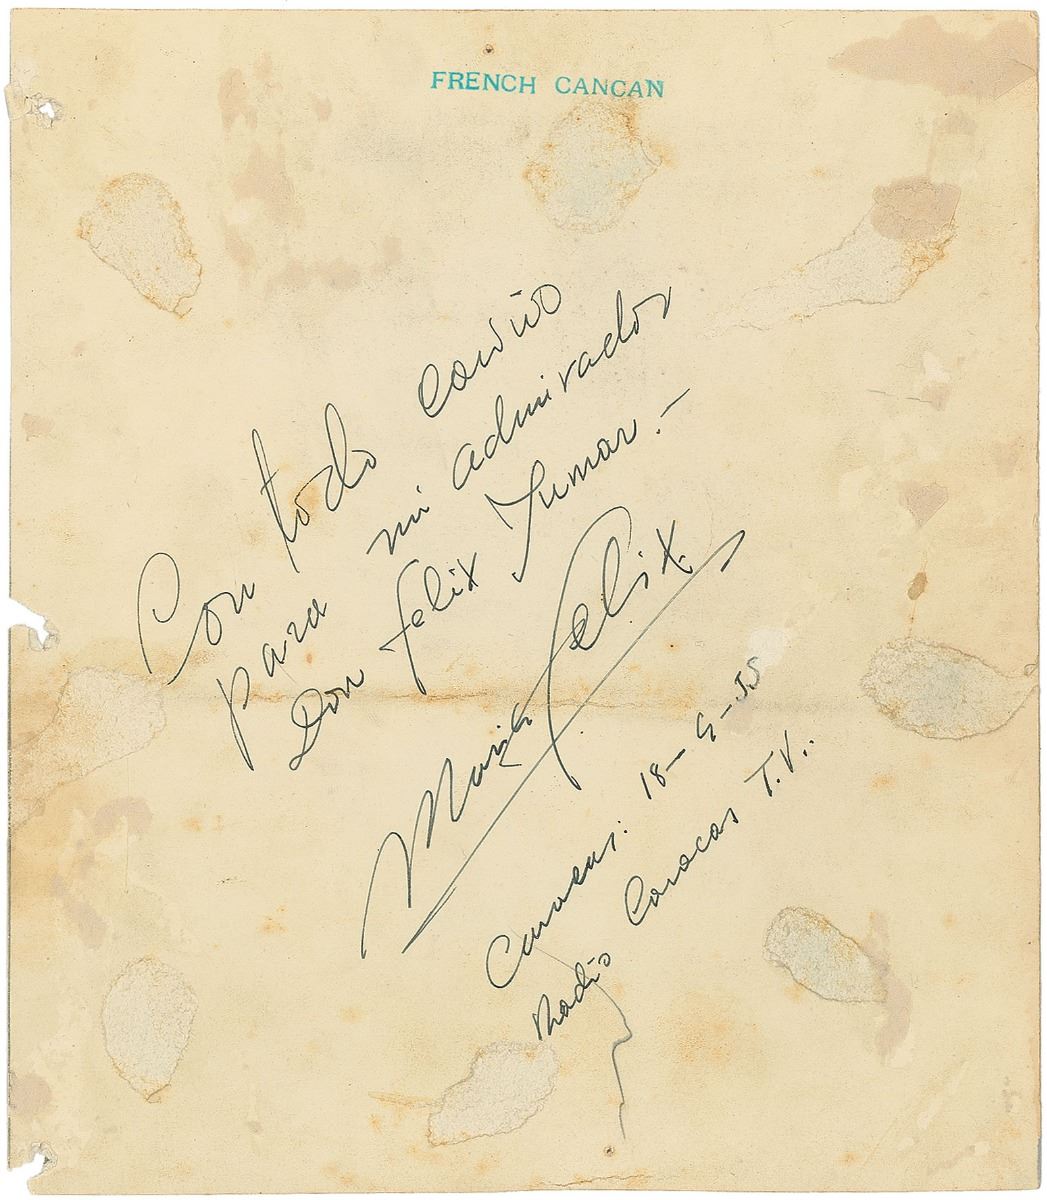 FRENCH CANCAN
Con todo cariño
para mi admirador
Don Felix Yumar.-
Maria Felix
Caracas: 18-9-55
Radio Caracas T.V..